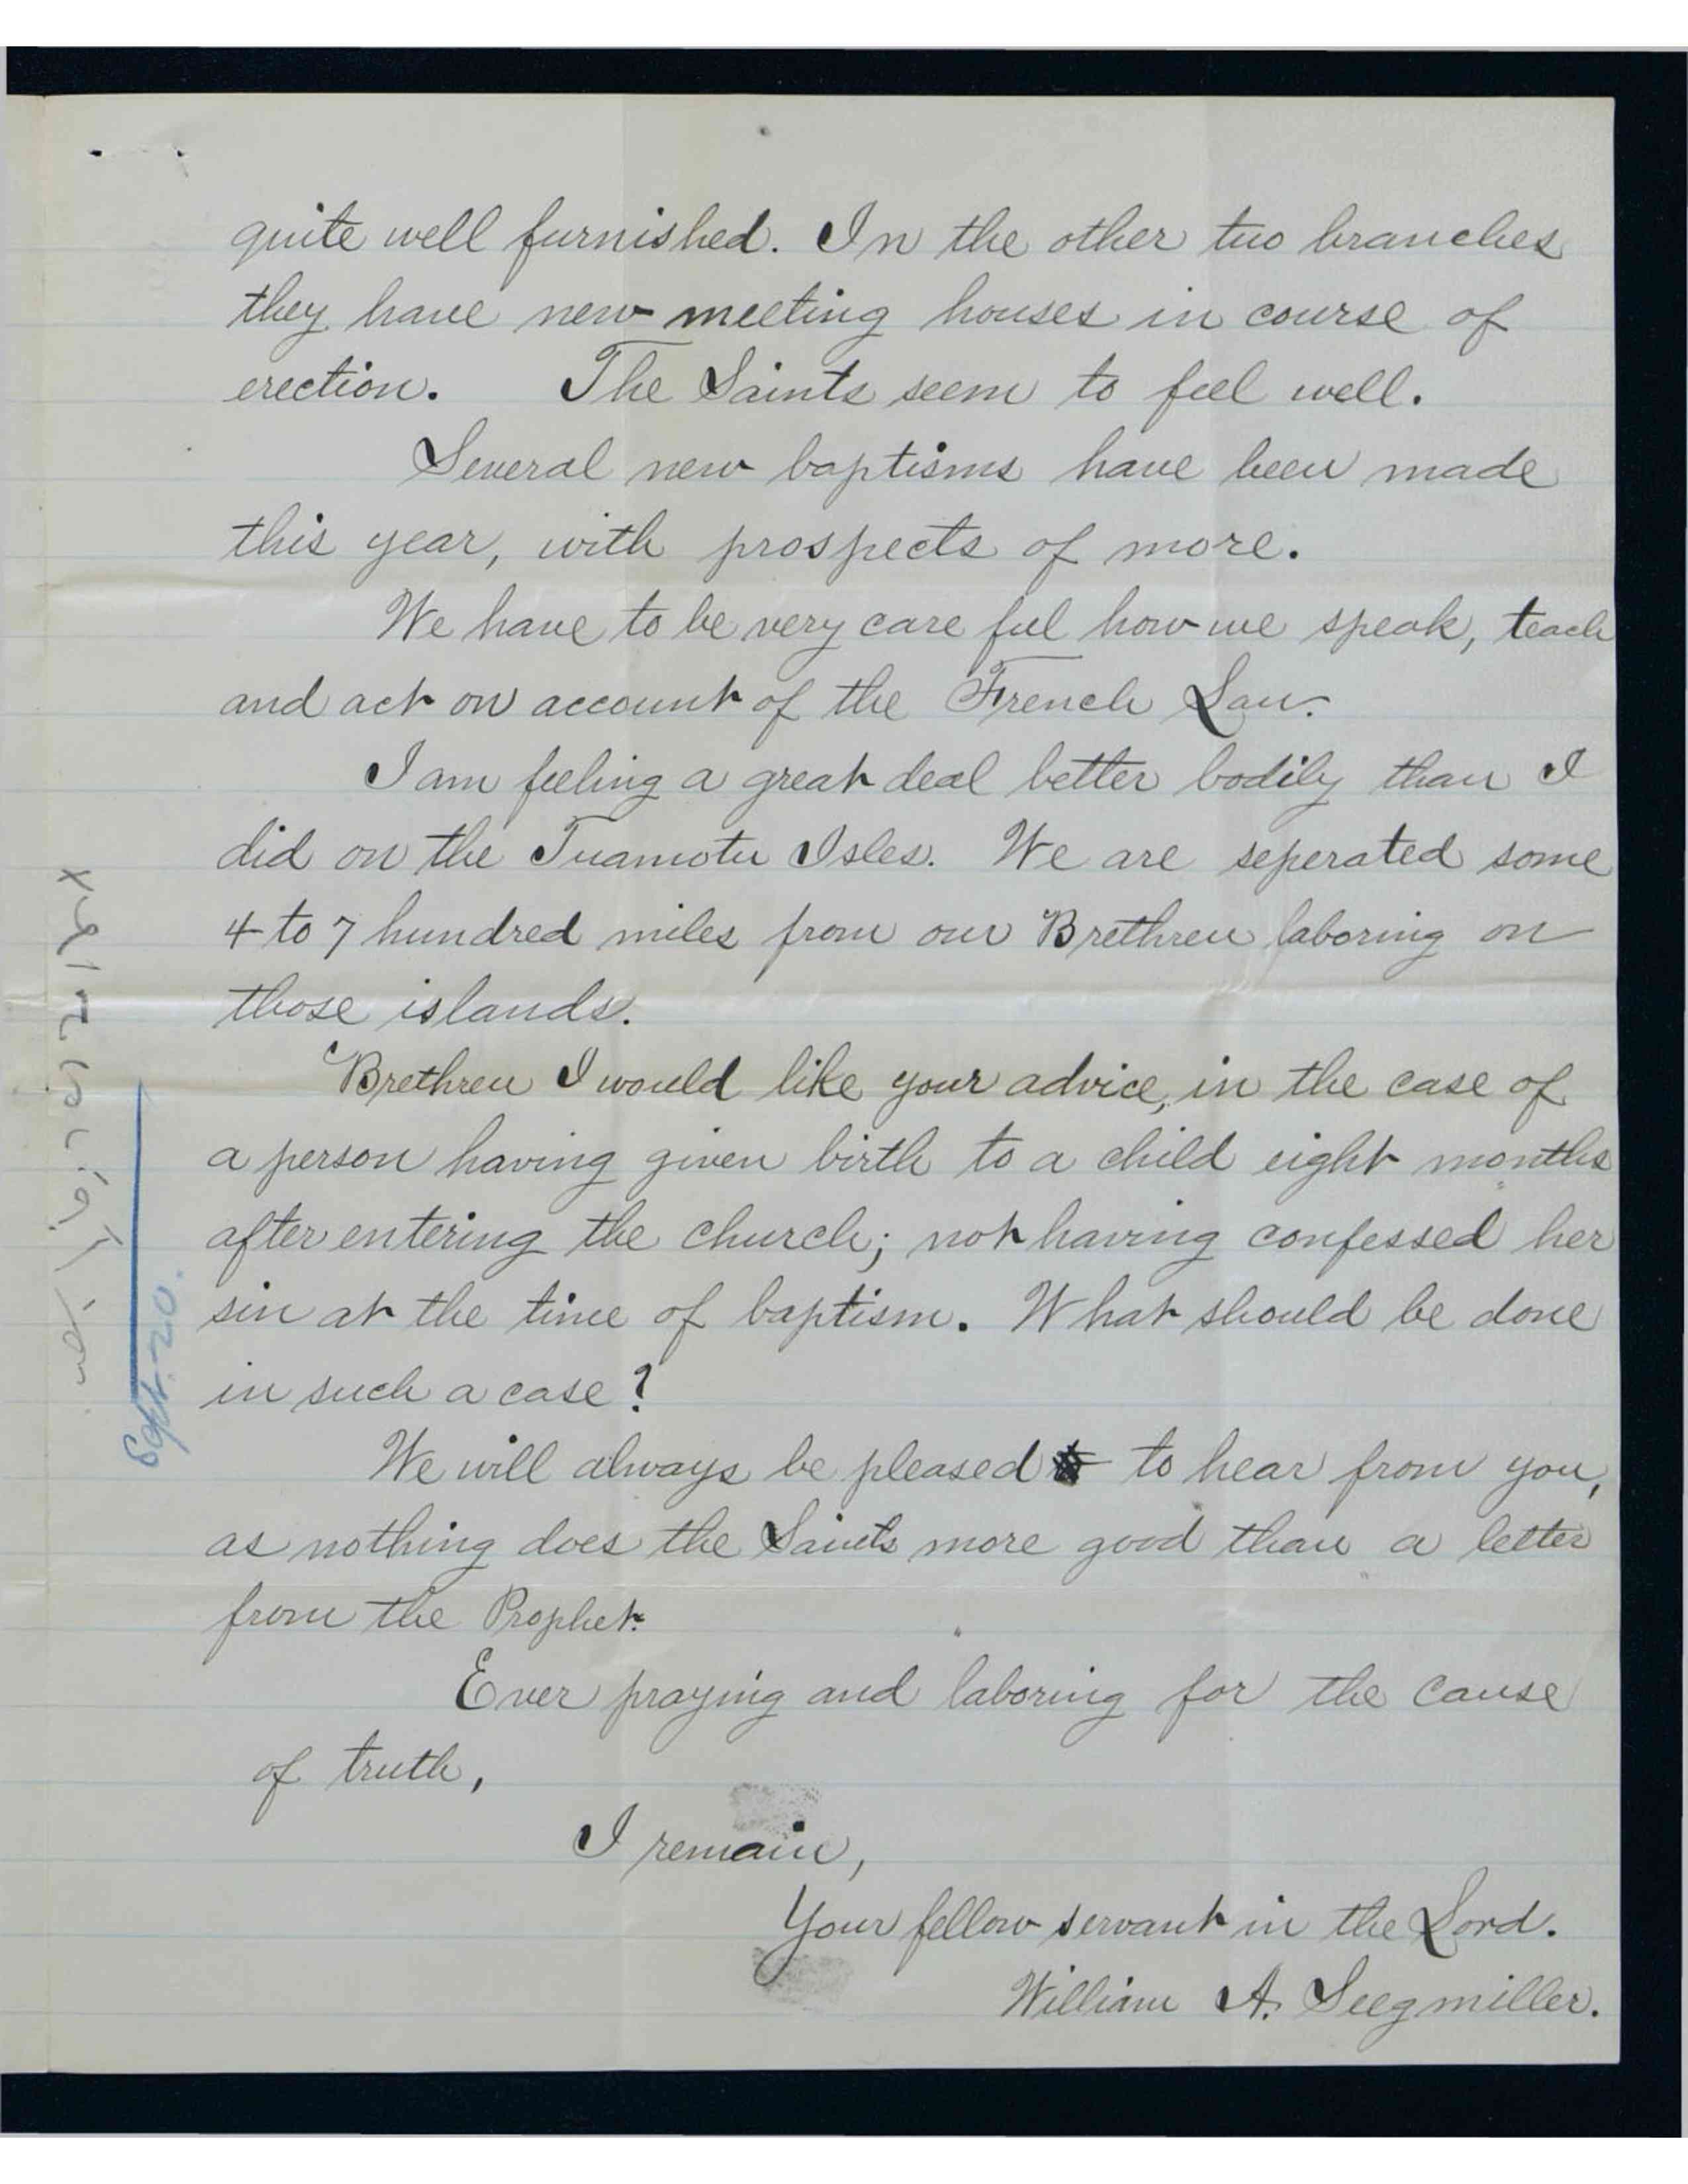 quite well furnished. In the other two branches
they have new meeting houses in course of
erection. The Saints seem to feel well.
Several new baptisms have been made
this year, with prospects of more.
We have to be very care ful how we speak, teach
and act on account of the French Law.
I am feeling a great deal better bodily than I
did on the Tuamotu Isles. We are seperated some
4 to 7 hundred miles from our Brethren laboring on
those islands.
Brethren I would like your advice, in the case of
a person having given birth to a child eight months
after entering the church; not having confessed her
sin at the time of baptism. What should be done
in such a case?
We will always be pleased to hear from you,
as nothing does the Saints more good than a letter
from the Prophet.
Ever praying and laboring for the cause
of truth,
I remain,
Your fellow servant in the Lord.
William A. Seegmiller.
Sept. 20.